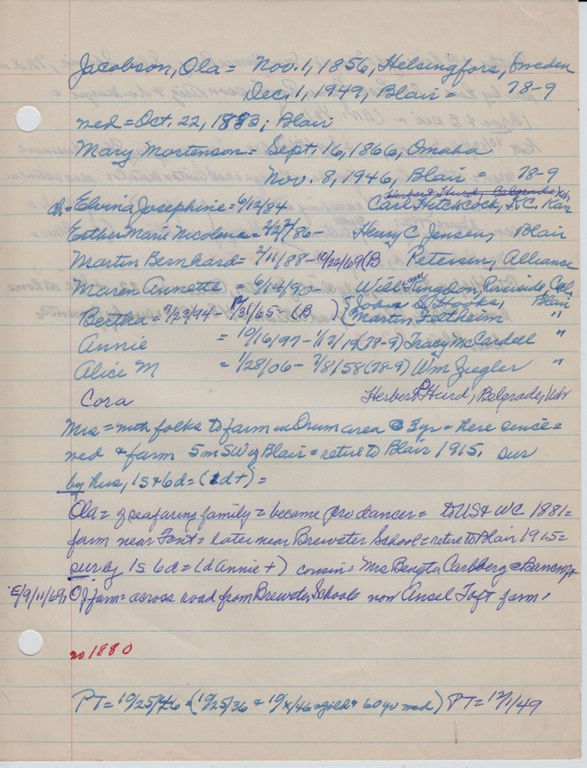 Jacobson, Ola = Nov. 1, 1856, Helsingfors, Sweden
Dec. 1, 1949, Blair = 78-9
med = Oct. 22, 1883; Blair
Mary Mortenson = Sept. 16, 1866, Omaha
Nov. 8, 1946, Blair = 78-9
Herbert Hurd, Belgrade, Neb
ch = Elvina Josephine = 6/12/84 Carl Hitchcock, K.C. Kan
Esther Marie Nicolena = 86 - Henry C. Jensen, Blair
Martin Bernhard = 2/11/88 - 10/22/69 (B Petersen, Alliance
Maren Annette = 6/14/90 - Will Langdon, Riverside, Cal,
Bertha = 7/23/94 - /31/65 (B ) { John S. Hooks, Blair
Martin Feltheim "
Annie = 10/16/97 - 1/2/19 (78-9) Tracy McCardell "
Alice M = 1/28/06 - 7/8/58 (78-9) Wm Ziegler "
Cora Herbert P Hurd, Belgrade, Neb
Mrs = with folks to farm in Orum area @ 3 yrs = here since =
med & farm 5 m SW of Blair = retire to Blair 1915, sur
by hus, 1s & 6d = (1d+) =
Ola = of seafaring family = became = to US & WC 1881 =
farm near Font = later near Brewster School = retire to Blair 1915 =
sur by 1s 6d = (d Annie +) cousin = Mrs Bengta Carlberg @ Bancroft
E/9/11/69, OJ farm = across road from Brewster School = now Ansel Toft farm,
no 1880
PT = 10/25/46 & (10/25/36 & 10/x/46 = gold & 60 yr med) PT = 12/1/49